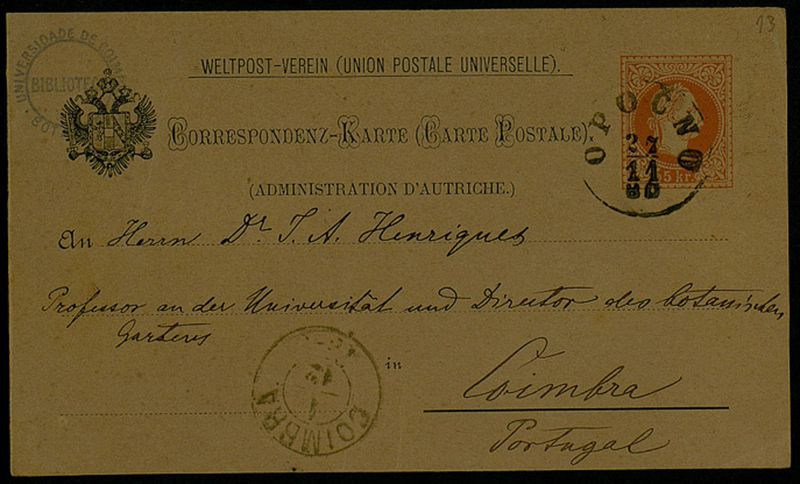 13
UNIVERSIDADE DE COIM
BIBLIOTEC
BOT
WELTPOST-VEREIN (UNION POSTALE UNIVERSELLE).
CORRESPONDENZ-KARTE (CARTE POSTALE).
(ADMINISTRATION D'AUTRICHE.)
OPOČNO
27
11
80
5 kr.
An Herrn Dr. J. A. Henriques
Professor an der Universität und Director des botanischen
Gartens
in
Coimbra
Portugal
COIMBRA